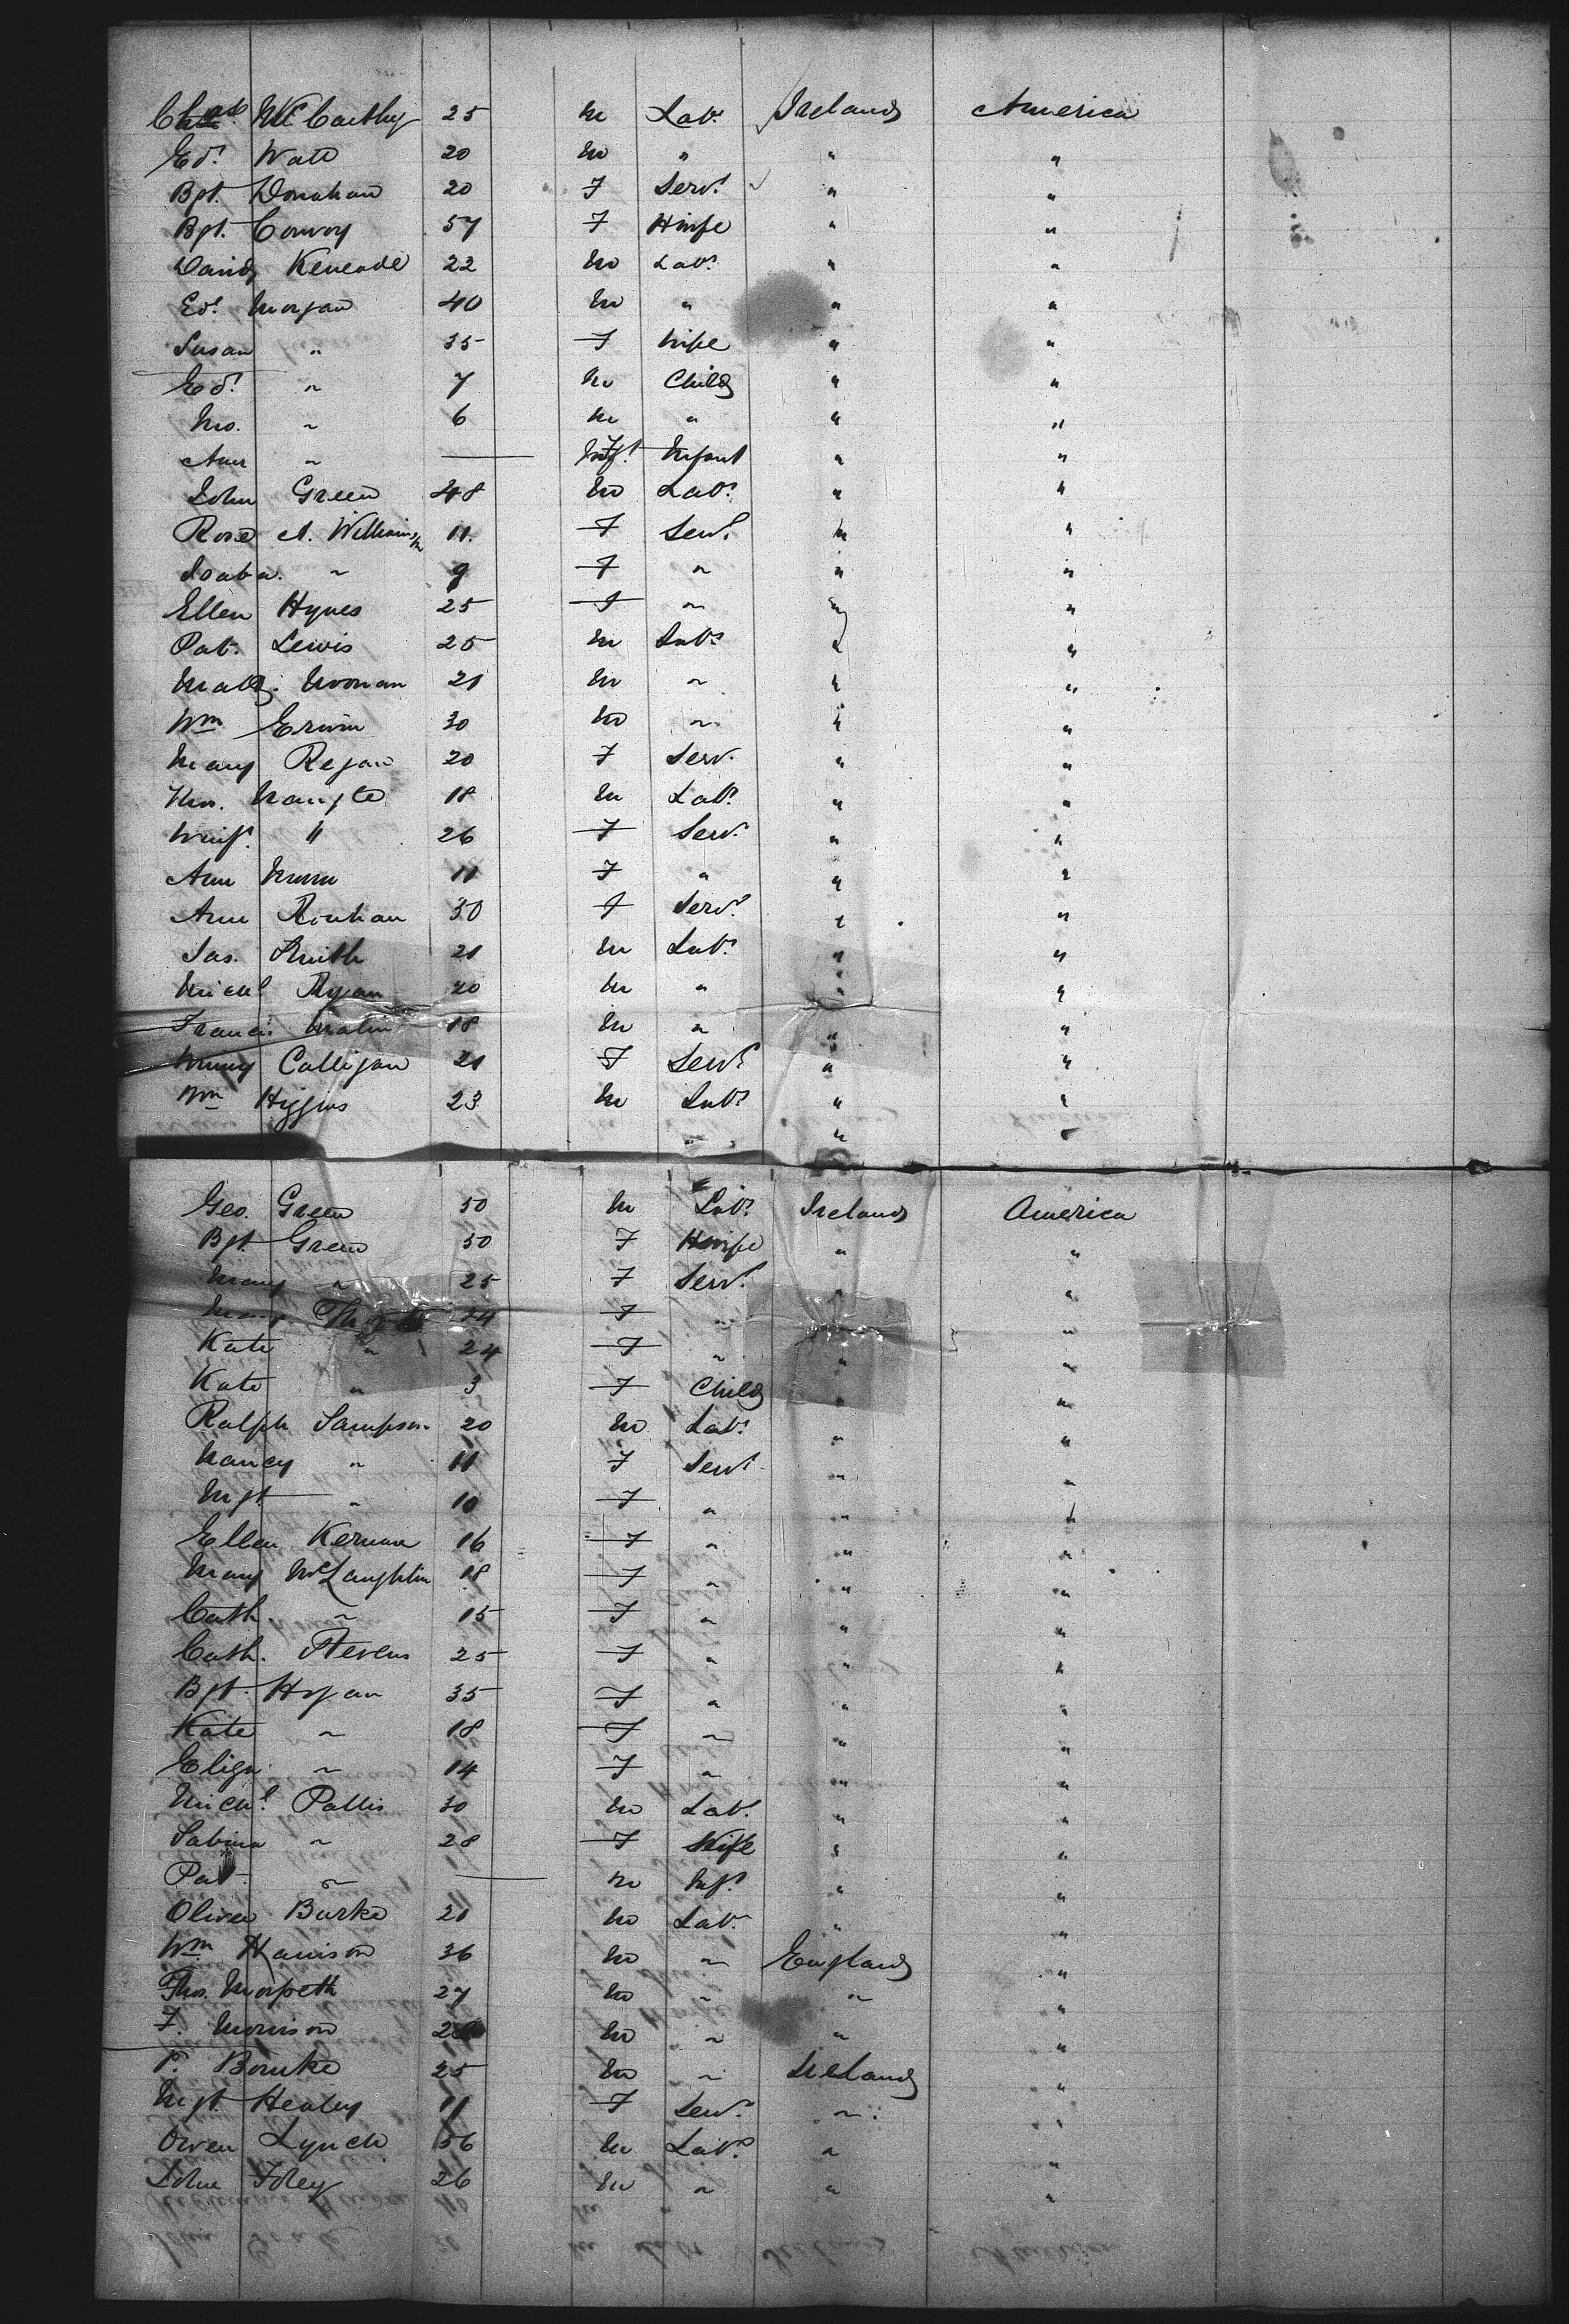 Chas McCarthy 25 M Labr Ireland America
Edd Watt 20 M " " "
Bgt. Donahan 20 F Servt " "
Bgt. Conroy 57 F Hwife " "
David 22 M Labr " "
Edd Morgan 40 M " " "
Susan " 35 F Wife " "
Edd " 7 M Child " "
Mo. " 6 M " " "
Ann " — Inft Infant " "
John Green 48 M Labr " "
Rose A. Williams 11 F Servt " "
Isaba. " 9 F " " "
Ellen Hynes 25 F " " "
Pat. Lewis 25 M Labr " "
Noonan 21 M " " "
Wm Erwin 30 M " " "
Mary Regan 20 F Serv. " "
18 M Labr " "
Winfd " 26 F Servt " "
Ann Nunn 11 F " " "
Ann 30 F Servt " "
Jas. Smith 21 M Labr " "
Michl Ryan 20 M " " "
Francis Malin 18 M " " "
Winny Calligan 21 F Servt " "
Wm Higgins 23 M Labr " "
" "
Geo. Green 50 M Labr Ireland America
Bgt. Green 50 F Hwife " "
Mary " 25 F Servt " "
Mary 24 F " " "
Kate " 24 F " " "
Kate " 3 F Child " "
Ralph Sampson 20 M Labr " "
Nancy " 11 F Servt " "
Mgt " 10 F " " "
Ellen Kernan 16 F " " "
Mary McLaughlin 18 F " " "
Cath. " 15 F " " "
Cath. Stevens 25 F " " "
Bgt. Hogan 35 F " " "
Kate " 18 F " " "
Eliza " 14 F " " "
Michl Pallis 30 M Labr " "
Sabina " 28 F Wife " "
Pat. " — M Inft " "
Oliver Burke 21 M Labr " "
Wm Harrison 36 M " England "
Thos. Morpeth 27 M " " "
F. Morrison M " " "
P. Bourke 25 M " Ireland "
Mgt. Healey 11 F Servt " "
Owen Lynch 56 M Labr " "
John Foley 26 M " " "